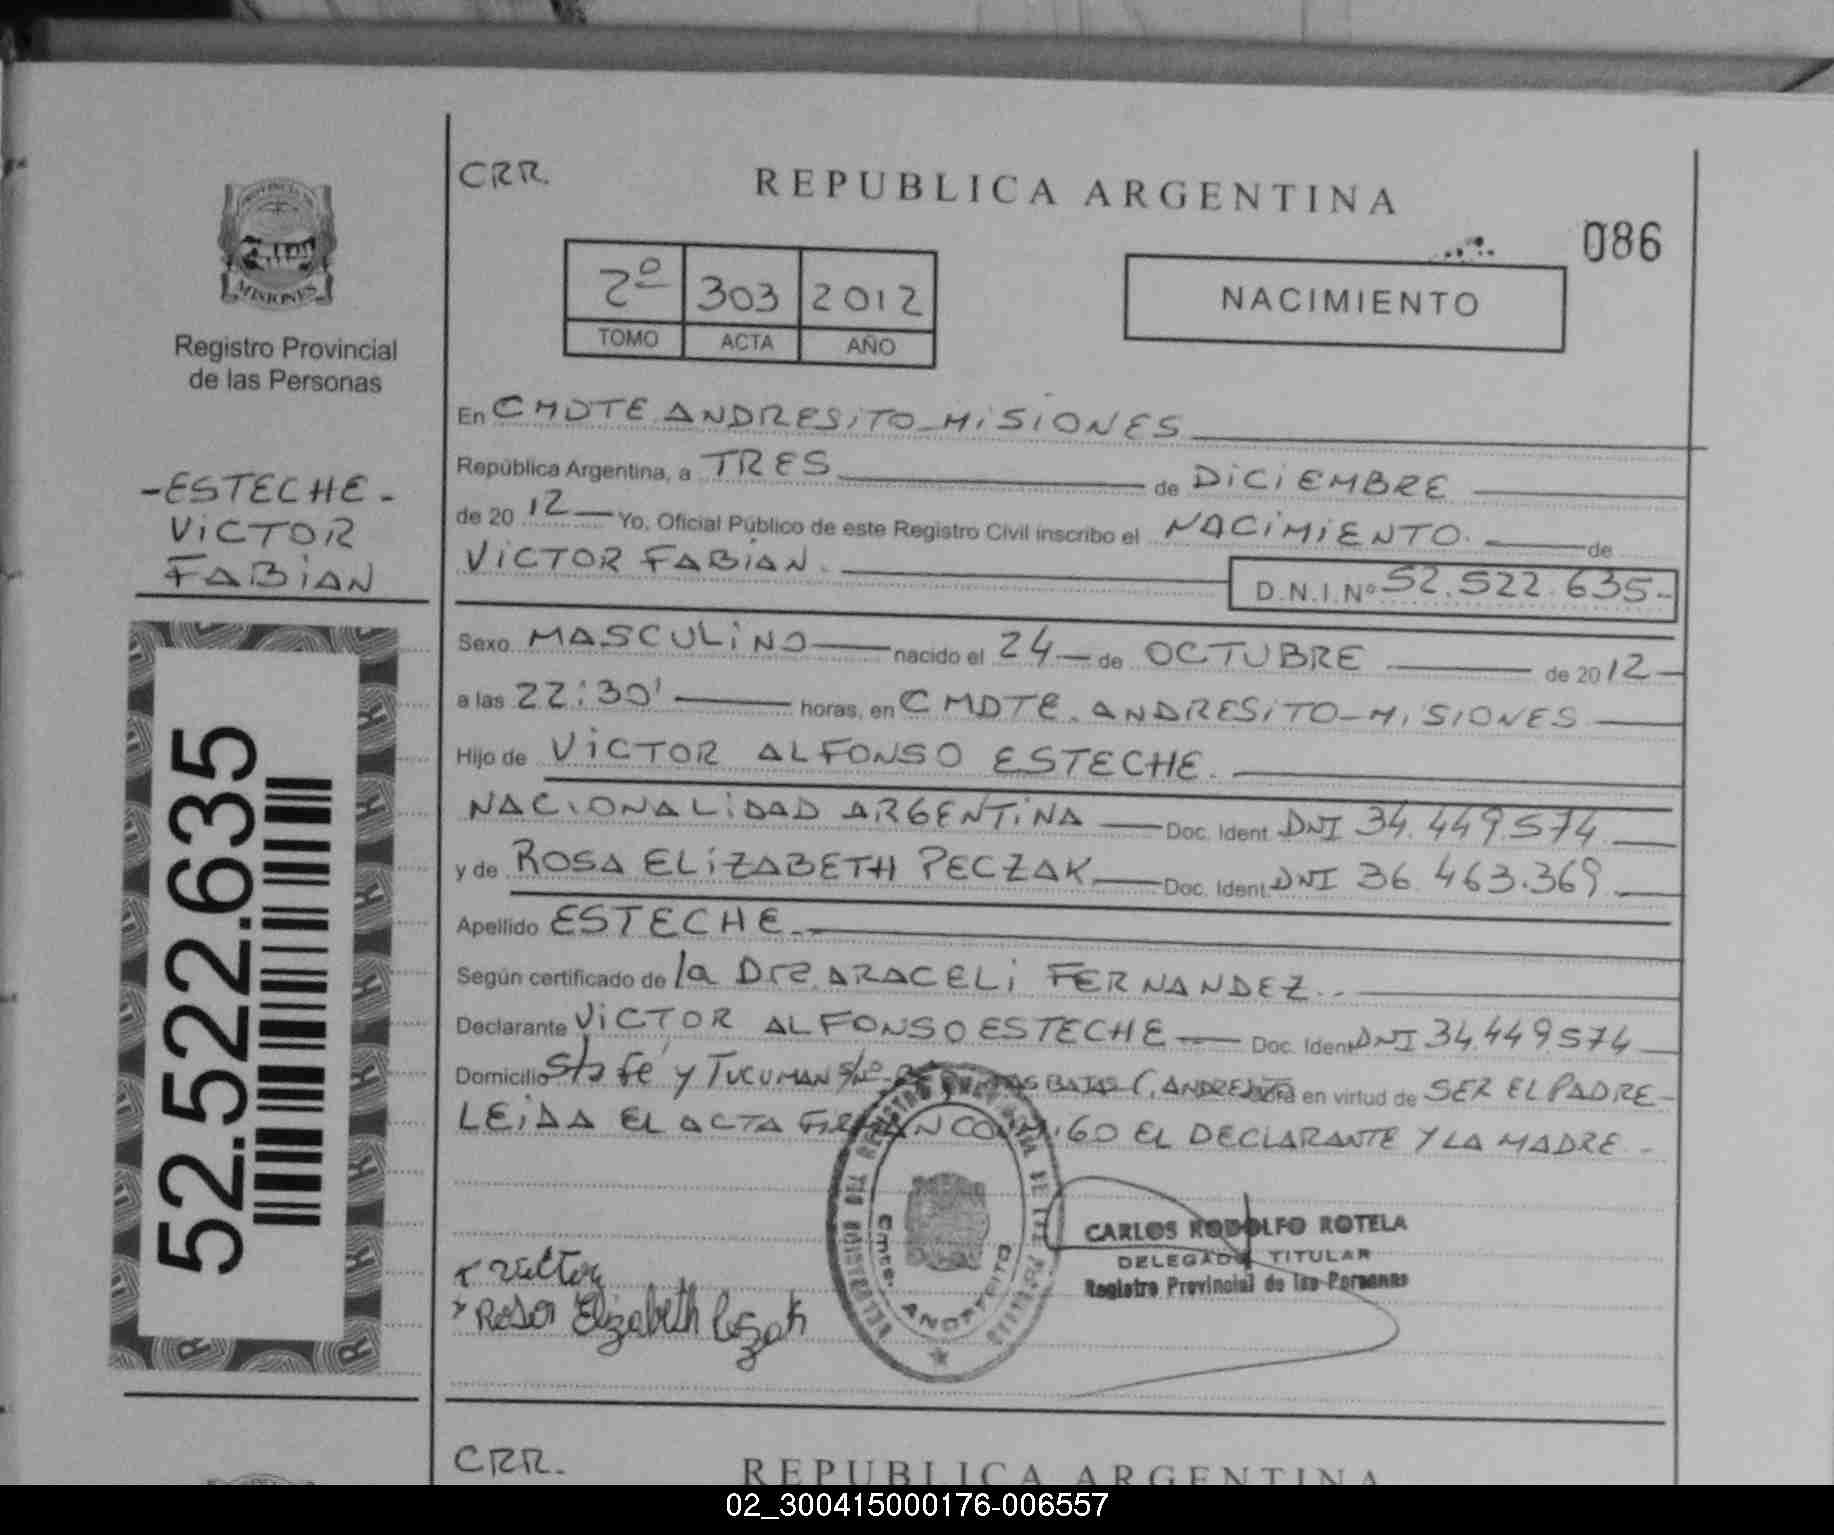 CRR.
REPUBLICA ARGENTINA
086
2º 303 2012
TOMO ACTA AÑO
NACIMIENTO
MISIONES
Registro Provincial
de las Personas
-ESTECHE-
VICTOR
FABIAN
52.522.635
En CMDTE ANDRESITO-MISIONES
República Argentina, a TRES de DICIEMBRE
de 20 12 Yo, Oficial Público de este Registro Civil inscribo el NACIMIENTO. de
VICTOR FABIAN.
D.N.I.Nº 52.522.635-
Sexo MASCULINO nacido el 24 de OCTUBRE de 2012
a las 22:30' horas, en CMDTE. ANDRESITO-MISIONES
Hijo de VICTOR ALFONSO ESTECHE.
NACIONALIDAD ARGENTINA Doc. Ident. DNI 34.449.574.
y de ROSA ELIZABETH PECZAK Doc. Ident. DNI 36.463.369
Apellido ESTECHE.
Según certificado de la DRA ARACELI FERNANDEZ.
Declarante VICTOR ALFONSO ESTECHE Doc. Ident. DNI 34.449.574
Domicilio Sta Fé y TUCUMAN S/Nº BAJAS en virtud de SER EL PADRE-
LEIDA EL ACTA FIRMAN CONMIGO EL DECLARANTE Y LA MADRE.-
Cmte. ANDRESITO
CARLOS RODOLFO ROTELA
DELEGADO TITULAR
Registro Provincial de las Personas
x Victor
x Rosa Elizabeth
CRR.
REPUBLICA ARGENTINA
02_300415000176-006557